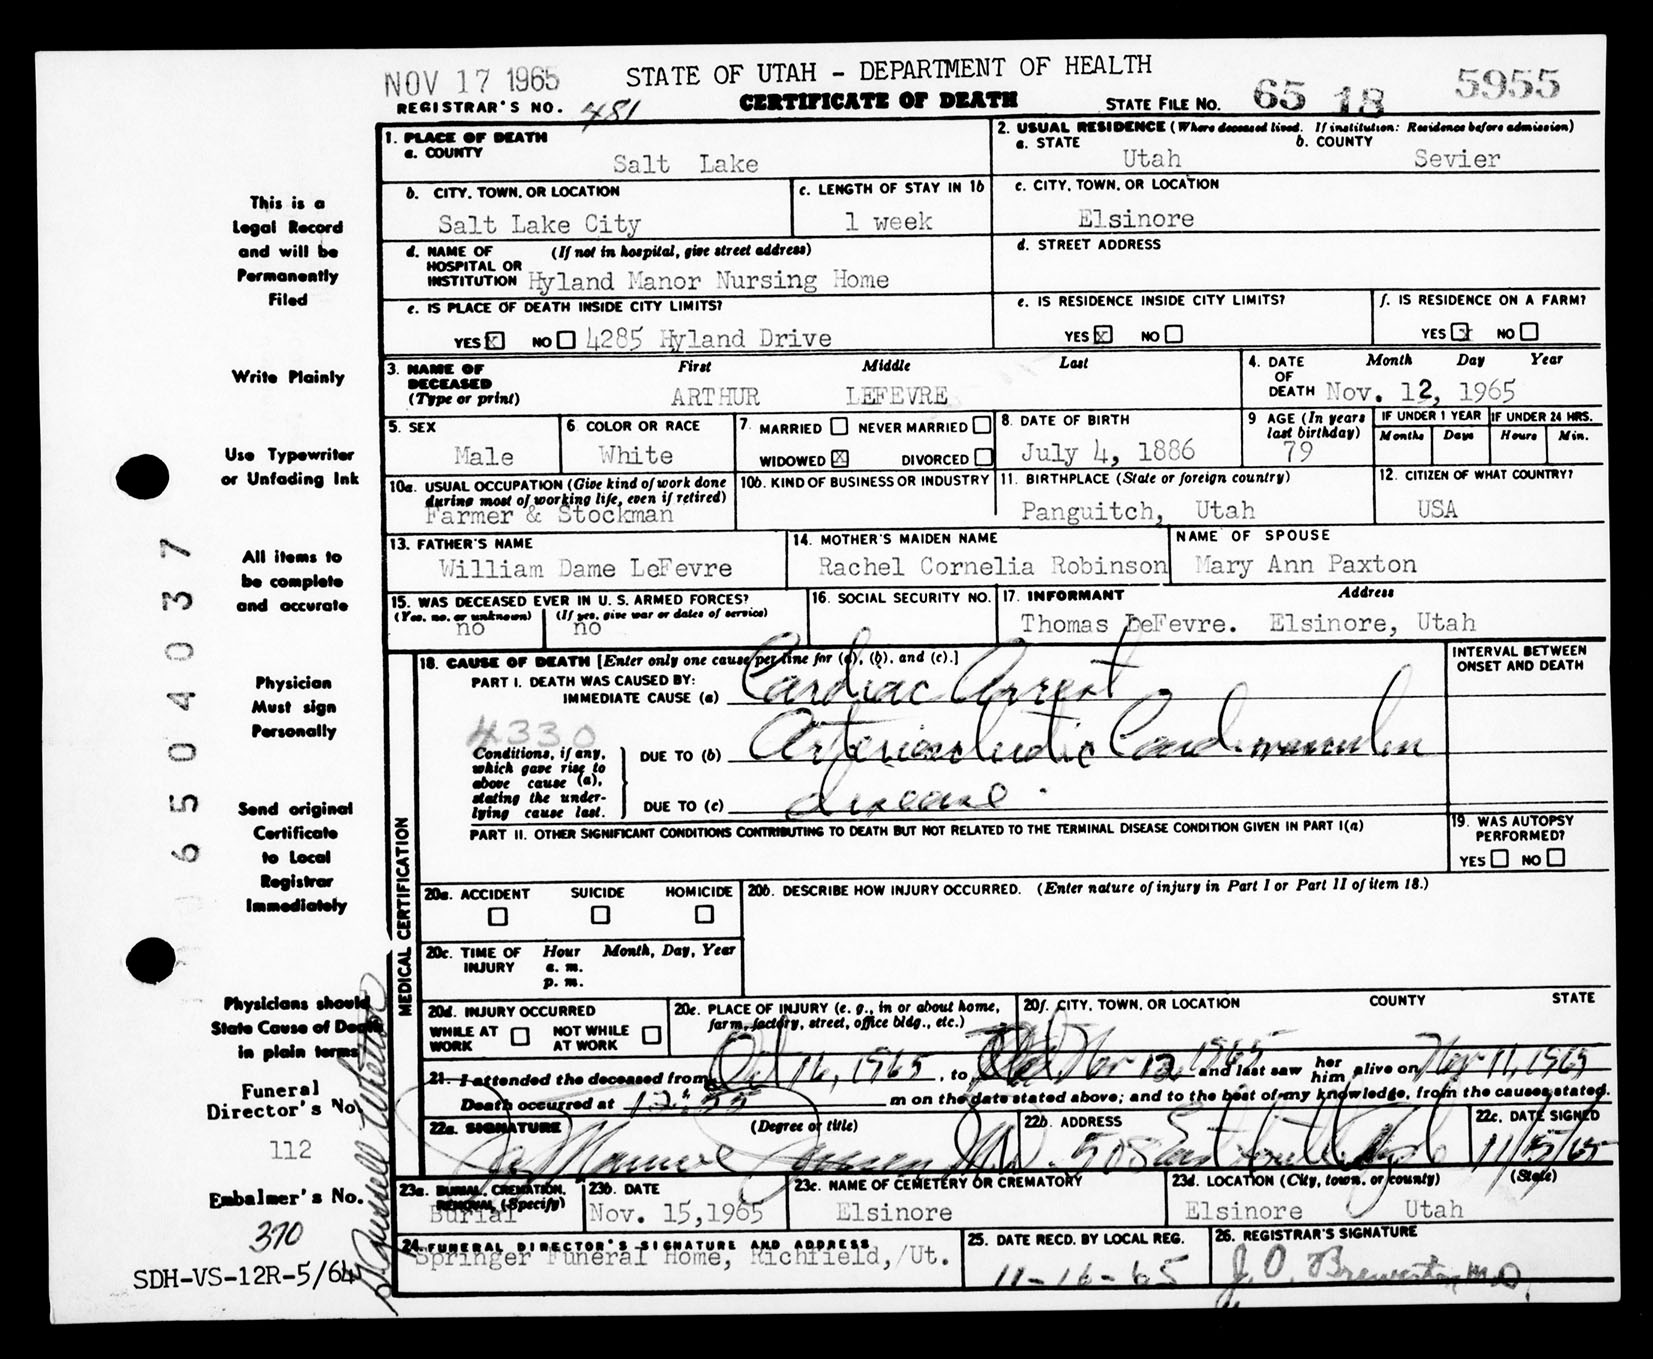 NOV 17 1965
STATE OF UTAH - DEPARTMENT OF HEALTH
REGISTRAR'S NO. 481
CERTIFICATE OF DEATH
STATE FILE NO. 65 18 5955
1. PLACE OF DEATH
a. COUNTY
Salt Lake
2. USUAL RESIDENCE (Where deceased lived. If institution: Residence before admission)
a. STATE
Utah
b. COUNTY
Sevier
b. CITY, TOWN, OR LOCATION
Salt Lake City
c. LENGTH OF STAY IN 1b
1 week
c. CITY, TOWN, OR LOCATION
Elsinore
d. NAME OF (If not in hospital, give street address)
HOSPITAL OR
INSTITUTION Hyland Manor Nursing Home
d. STREET ADDRESS
e. IS PLACE OF DEATH INSIDE CITY LIMITS?
YES X NO 4285 Hyland Drive
e. IS RESIDENCE INSIDE CITY LIMITS?
YES X NO
f. IS RESIDENCE ON A FARM?
YES X NO
3. NAME OF
DECEASED
(Type or print)
First Middle Last
ARTHUR LEFEVRE
4. DATE Month Day Year
OF
DEATH Nov. 12, 1965
5. SEX
Male
6 COLOR OR RACE
White
7. MARRIED NEVER MARRIED
WIDOWED X DIVORCED
8. DATE OF BIRTH
July 4, 1886
9 AGE (In years
last birthday)
79
IF UNDER 1 YEAR
Months Days
IF UNDER 24 HRS.
Hours Min.
10a. USUAL OCCUPATION (Give kind of work done
during most of working life, even if retired)
Farmer & Stockman
10b. KIND OF BUSINESS OR INDUSTRY
11. BIRTHPLACE (State or foreign country)
Panguitch, Utah
12. CITIZEN OF WHAT COUNTRY?
USA
13. FATHER'S NAME
William Dame LeFevre
14. MOTHER'S MAIDEN NAME
Rachel Cornelia Robinson
NAME OF SPOUSE
Mary Ann Paxton
15. WAS DECEASED EVER IN U. S. ARMED FORCES?
(Yes, no, or unknown) (If yes, give war or dates of service)
no no
16. SOCIAL SECURITY NO.
17. INFORMANT Address
Thomas LeFevre. Elsinore, Utah
MEDICAL CERTIFICATION
18. CAUSE OF DEATH [Enter only one cause per line for (a), (b), and (c).]
INTERVAL BETWEEN
ONSET AND DEATH
PART I. DEATH WAS CAUSED BY:
IMMEDIATE CAUSE (a) Cardiac Arrest
4330
Conditions, if any,
which gave rise to
above cause (a),
stating the under-
lying cause last.
DUE TO (b) Arteriosclerotic Cardiovascular
DUE TO (c) disease.
PART II. OTHER SIGNIFICANT CONDITIONS CONTRIBUTING TO DEATH BUT NOT RELATED TO THE TERMINAL DISEASE CONDITION GIVEN IN PART I(a)
19. WAS AUTOPSY
PERFORMED?
YES NO
20a. ACCIDENT SUICIDE HOMICIDE
20b. DESCRIBE HOW INJURY OCCURRED. (Enter nature of injury in Part I or Part II of item 18.)
20c. TIME OF Hour Month, Day, Year
INJURY a. m.
p. m.
20d. INJURY OCCURRED
WHILE AT WORK NOT WHILE AT WORK
20e. PLACE OF INJURY (e. g., in or about home,
farm, factory, street, office bldg., etc.)
20f. CITY, TOWN, OR LOCATION COUNTY STATE
21. I attended the deceased from Oct 16, 1965, to Nov 12, 1965 and last saw her him alive on Nov 11, 1965
Death occurred at 12:55 m on the date stated above; and to the best of my knowledge, from the causes stated.
22a. SIGNATURE (Degree or title)
M.D.
22b. ADDRESS
508 East South Temple
22c. DATE SIGNED
11/15/65
23a. BURIAL, CREMATION,
REMOVAL (Specify)
Burial
23b. DATE
Nov. 15,1965
23c. NAME OF CEMETERY OR CREMATORY
Elsinore
23d. LOCATION (City, town, or county) (State)
Elsinore Utah
24. FUNERAL DIRECTOR'S SIGNATURE AND ADDRESS
Springer Funeral Home, Richfield, Ut.
25. DATE RECD. BY LOCAL REG.
11-16-65
26. REGISTRAR'S SIGNATURE
This is a
Legal Record
and will be
Permanently
Filed
Write Plainly
Use Typewriter
or Unfading Ink
All items to
be complete
and accurate
Physician
Must sign
Personally
Send original
Certificate
to Local
Registrar
Immediately
Physicians should
State Cause of Death
in plain terms
Funeral
Director's No.
112
Embalmer's No.
370
SDH-VS-12R-5/64
6504037